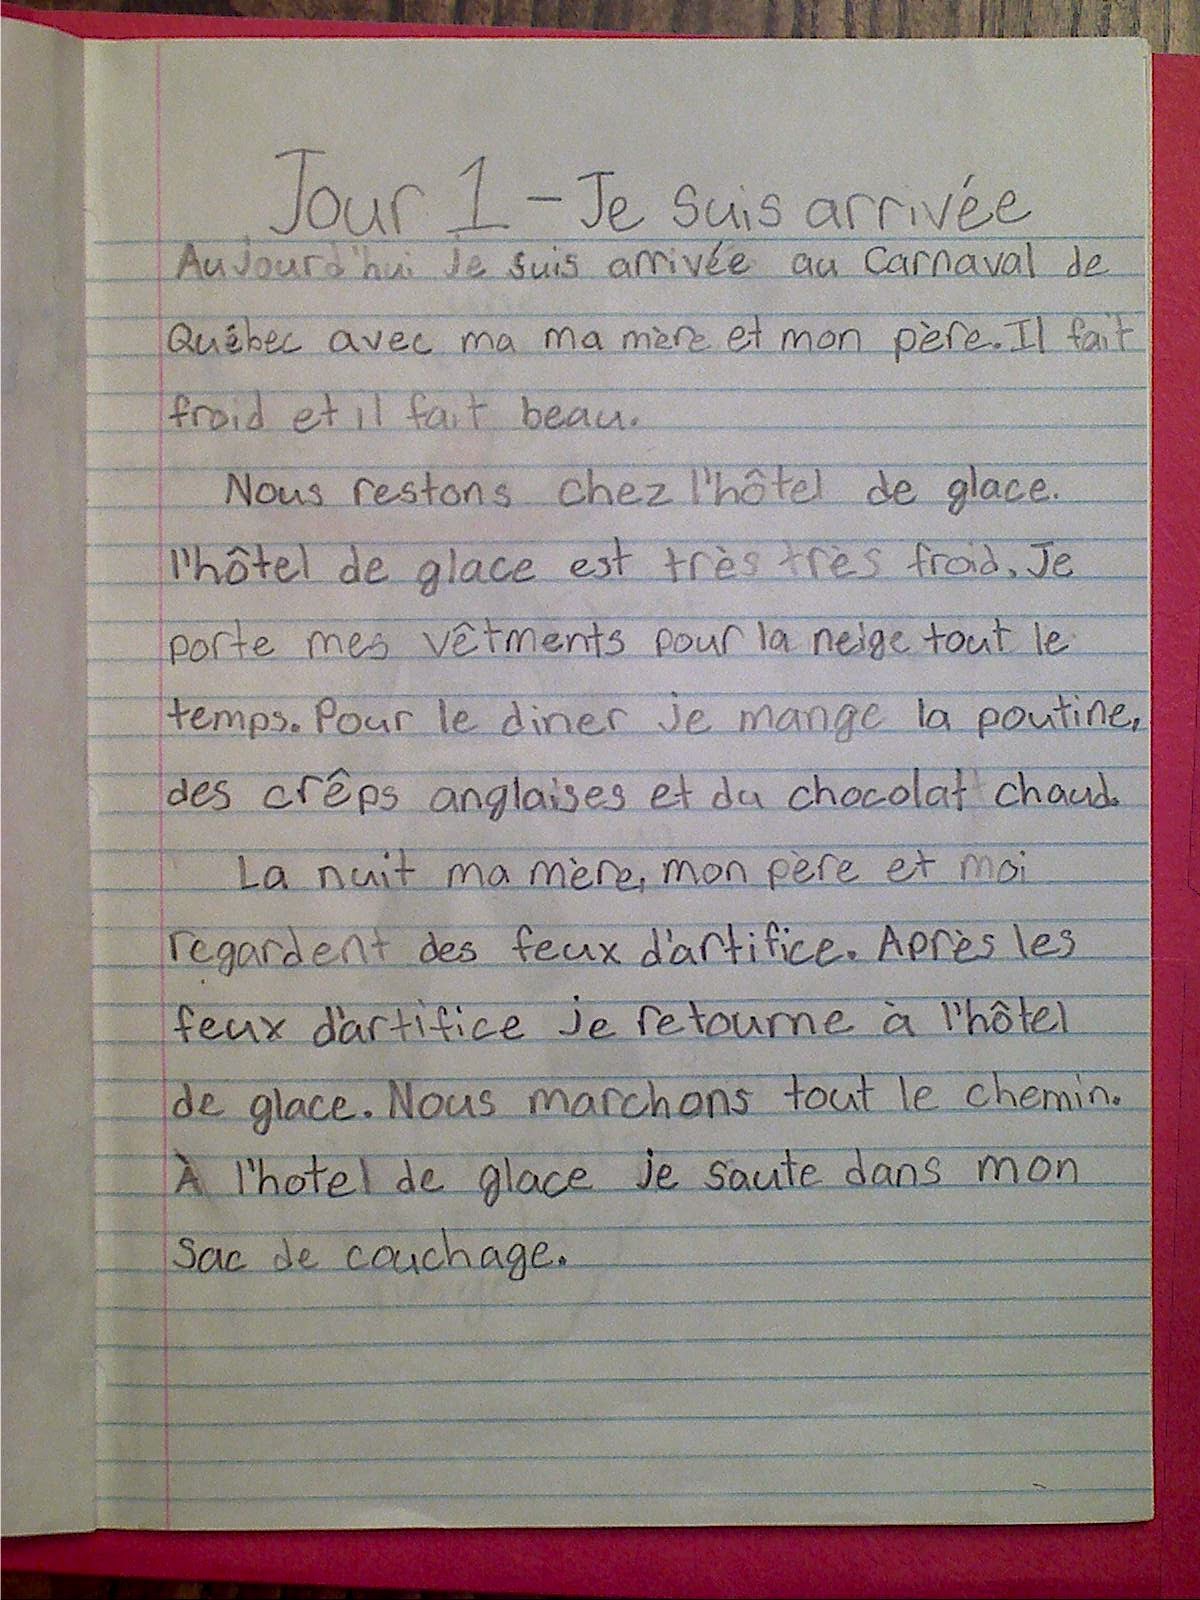 Jour 1 - Je suis arrivée
Aujourd'hui je suis arrivée au Carnaval de
Québec avec ma ma mère et mon père. Il fait
froid et il fait beau.
Nous restons chez l'hôtel de glace.
l'hôtel de glace est très très froid. Je
porte mes vêtments pour la neige tout le
temps. Pour le diner je mange la poutine,
des crêps anglaises et du chocolat chaud.
La nuit ma mère, mon père et moi
regardent des feux d'artifice. Après les
feux d'artifice je retourne à l'hôtel
de glace. Nous marchons tout le chemin.
À l'hotel de glace je saute dans mon
sac de couchage.